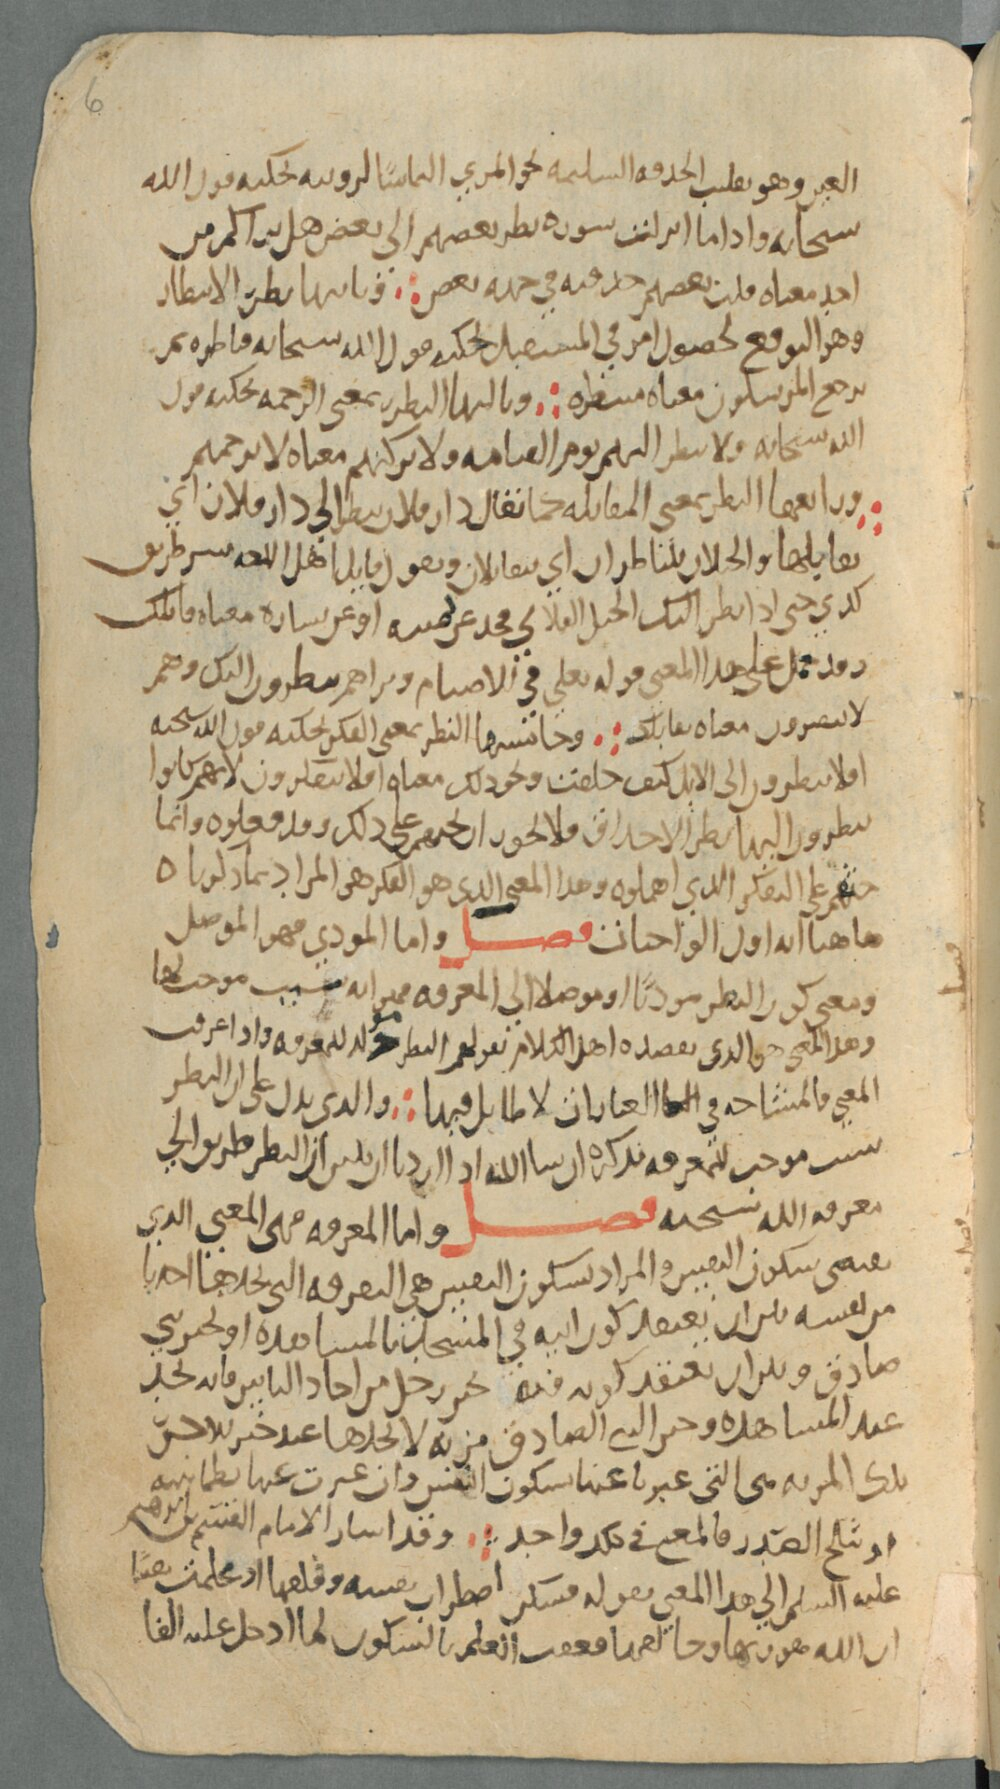 6
العين وهو تقليب الحدقه السليمه نحو المرئي التماسًا لرؤيته يحكيه قول الله
سبحانه واذا ما انزلت سوره نظر بعضهم الى بعض هل يراكم من
احد معناه قلب بعضهم حدقته في جهه بعض وثانيها نظر الانتظار
وهو التوقع لحصول امر في المستقبل يحكيه قول الله سبحانه فناظره بم
يرجع المرسلون معناه منتظره وثالثها النظر بمعنى الرحمه يحكيه قول
الله سبحانه ولا ينظر اليهم يوم القيامه ولا يزكيهم معناه لا يرحمهم
ورابعها النظر بمعنى المقابله كما يقال دار فلان ينظر الى دار فلان اي
تقابلها والجبلان يتناظران اي يتقابلان ويقول قايل اهل اللغه سر طريق
كذي حتى اذا نظر اليك الجبل الفلاني فخذ عن يمينه او عن يساره معناه قابلك
وقد حمل على هذا المعنى قوله تعلى في الاصنام وتراهم ينظرون اليك وهم
لا يبصرون معناه تقابلك وخامسها النظر بمعنى الفكر يحكيه قول الله سبحنه
افلا ينظرون الى الابل كيف خلقت ونحو ذلك معناه افلا يتفكرون لانهم كانوا
ينظرون اليها نظر الاحداق فلا يجوز ان يحثهم على ذلك وقد فعلوه وانما
حثهم على التفكر الذي اهملوه وهذا المعنى الذي هو الفكر هو المراد بما ذكرناه
هاهنا انه اول الواجبات فصل واما المودي فهو الموصل
ومعنى كون النظر موديًا او موصلا الى المعرفه فهو انه سبب موجب لها
وهذا المعنى هو الذي يقصده اهل الكلام بقولهم النظر مولد للمعرفه واذا عرف
المعنى فالمشاحه في العبارات لا طايل فيها والذي يدل على ان النظر
سبب موجب للمعرفه نذكره ان شا الله اذا اردنا ان نبين ان النظر طريق الى
معرفه الله سبحنه فصل واما المعرفه فهي المعنى الذي
يقتضي سكون النفس والمراد بسكون النفس هي التفرقه التي يجدها احدنا
من نفسه بين ان يعتقد كون ابيه في المسجد بالمشاهده او بخبر نبي
صادق وبين ان يعتقد كونه فيه بخبر رجل من احاد الناس فانه يجد
عند المشاهده وخبر النبي الصادق مزيه لا يجدها عند خبر الاخر
تلك المزيه هي التي عبرنا عنها بسكون النفس وان عبرت عنها بطمانينه
او ثلج الصدر فالمعنى في ذلك واحد وقد اشار الامام القسم بن ابرهيم
عليه السلم الى هذا المعنى بقوله فسكن اضطراب نفسه وقلقها اذ علمت يقينًا
ان الله هو ربها وخالقها فعقب العلم بالسكون لما ادخل عليه الفا
فصل
فصل